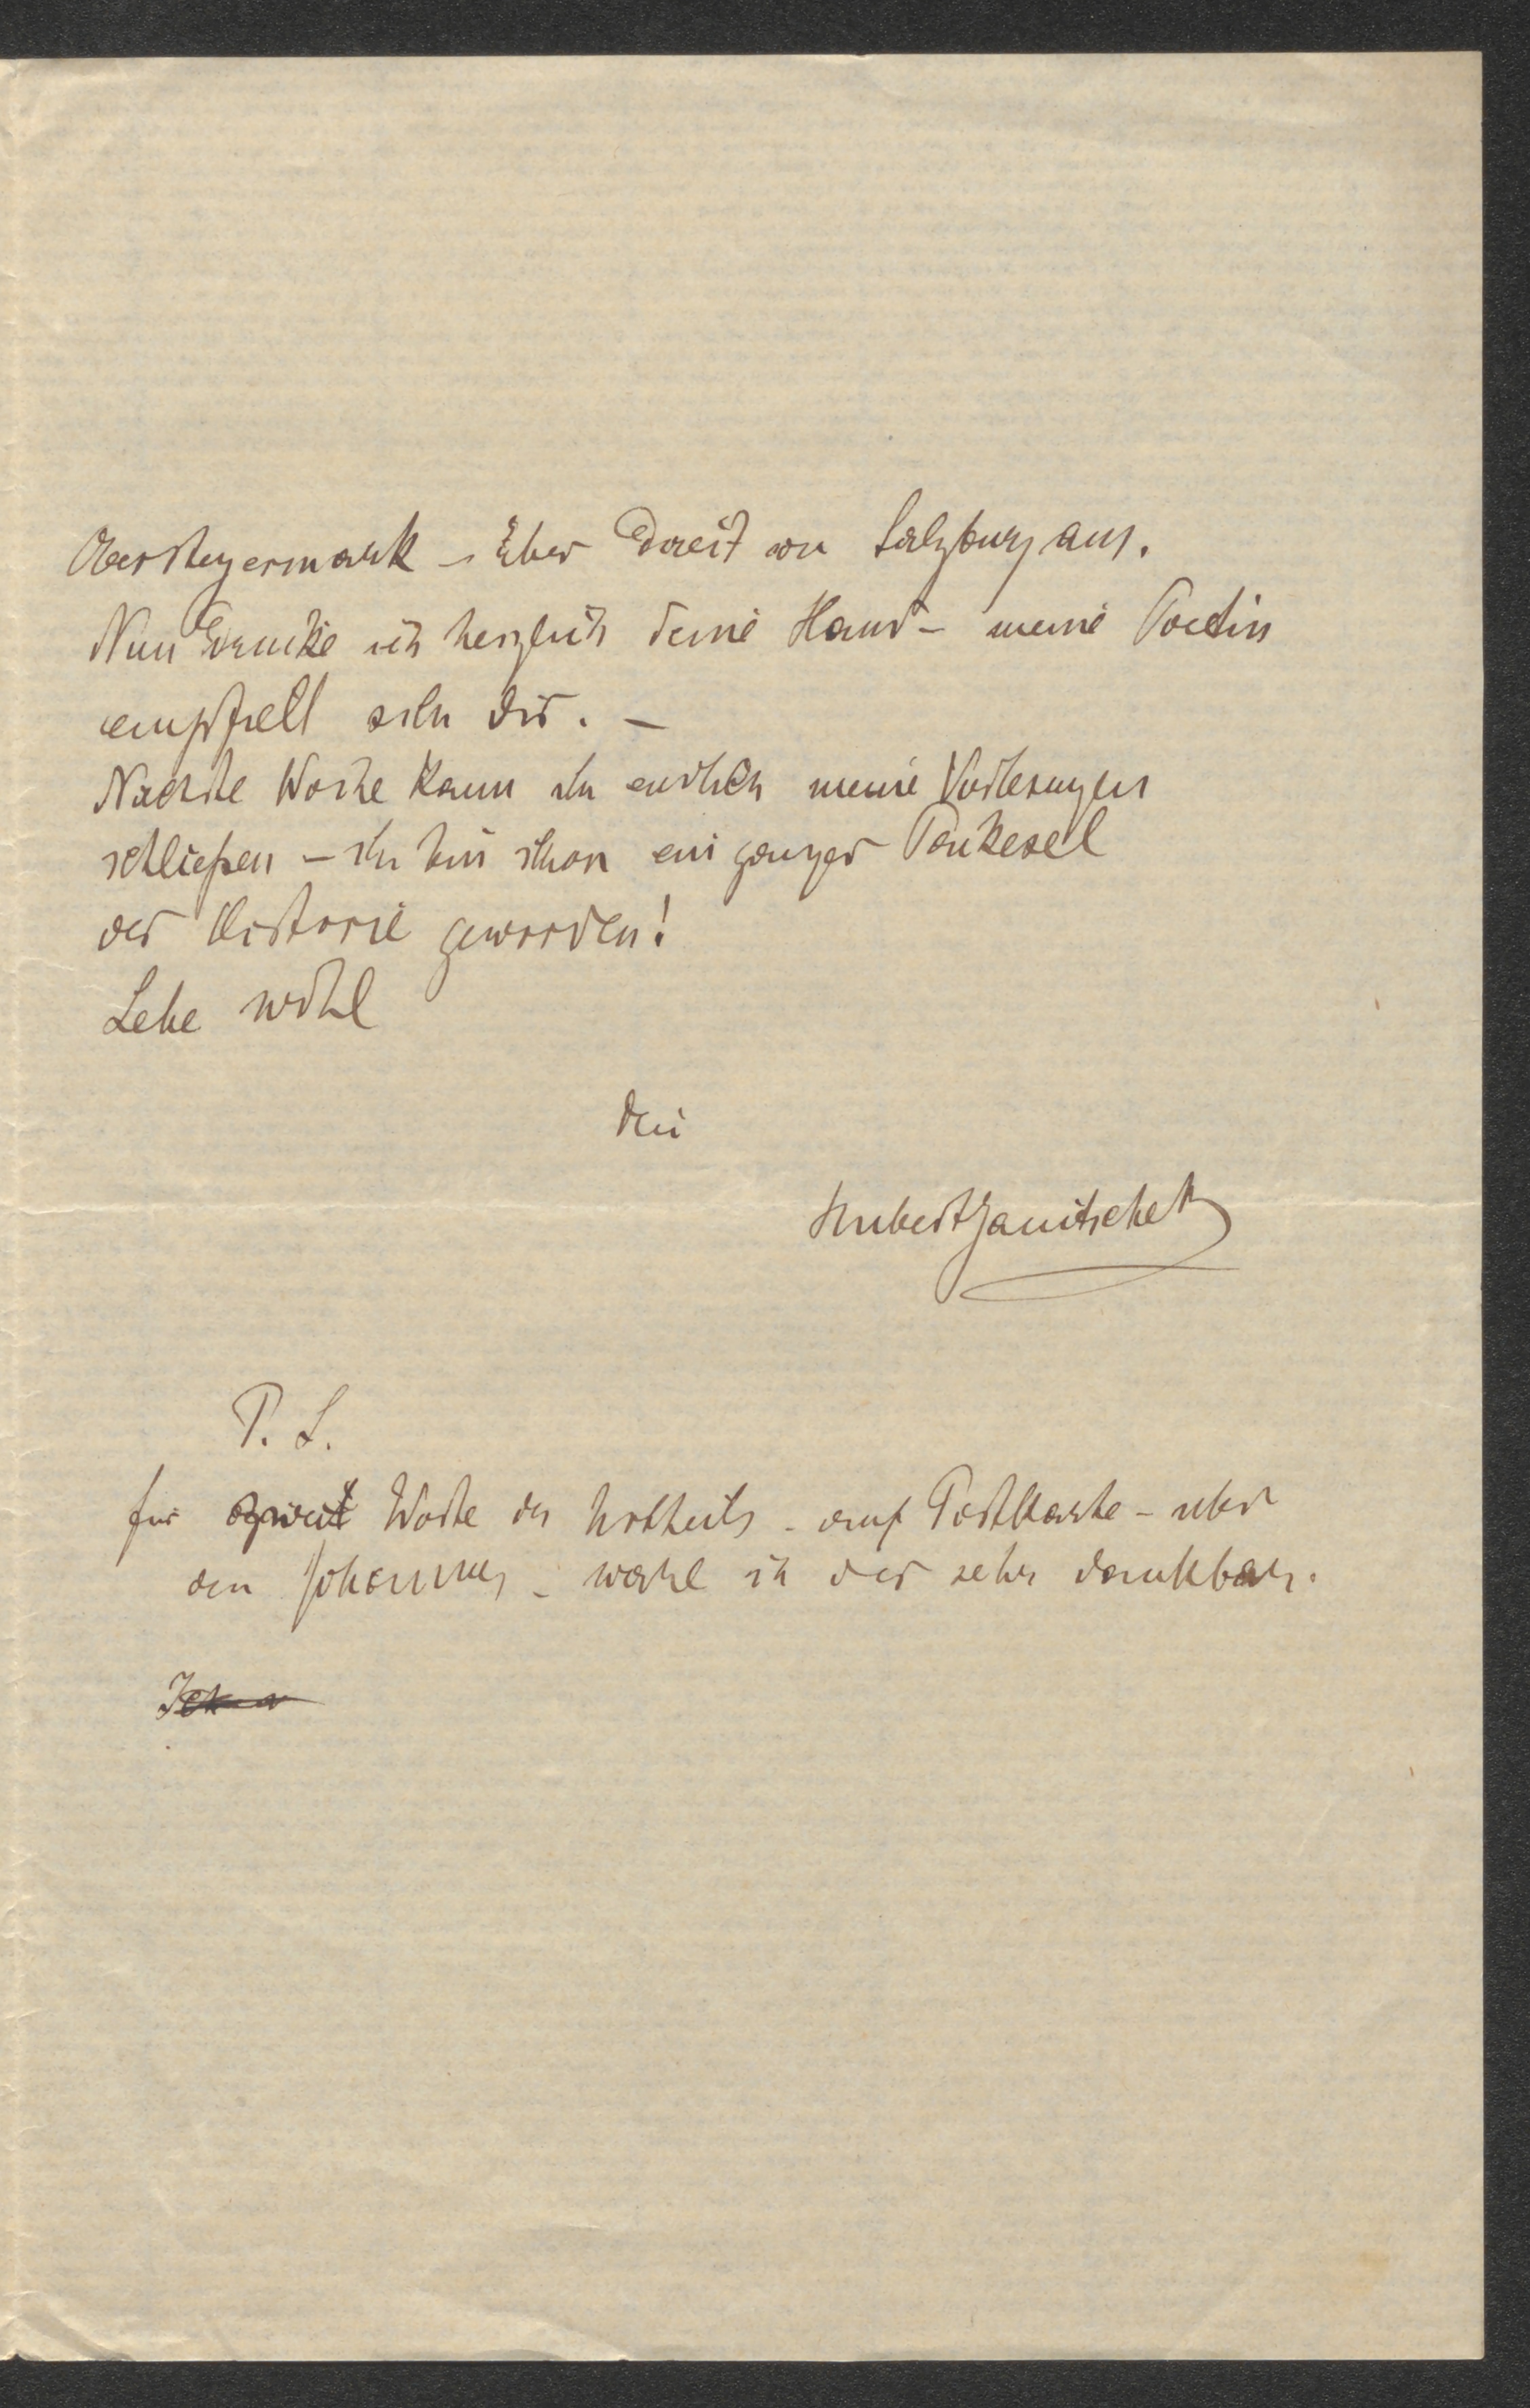 Obersteyermark – Eher direct von Salzburg aus.
Nun drücke ich herzlich deine Hand – meine Poetin
empfielt sich dir. –
Nächste Woche kann ich endlich meine Vorlesungen
schließen – ich bin schon ein ganzer Paukesel
der Historie geworden!
Lebe wohl
dein
Hubert Janitschek
P. S.
für zwei Worte des Urtheils – auf Postkarte – über
den Johannes – wäre ich dir sehr dankbar.